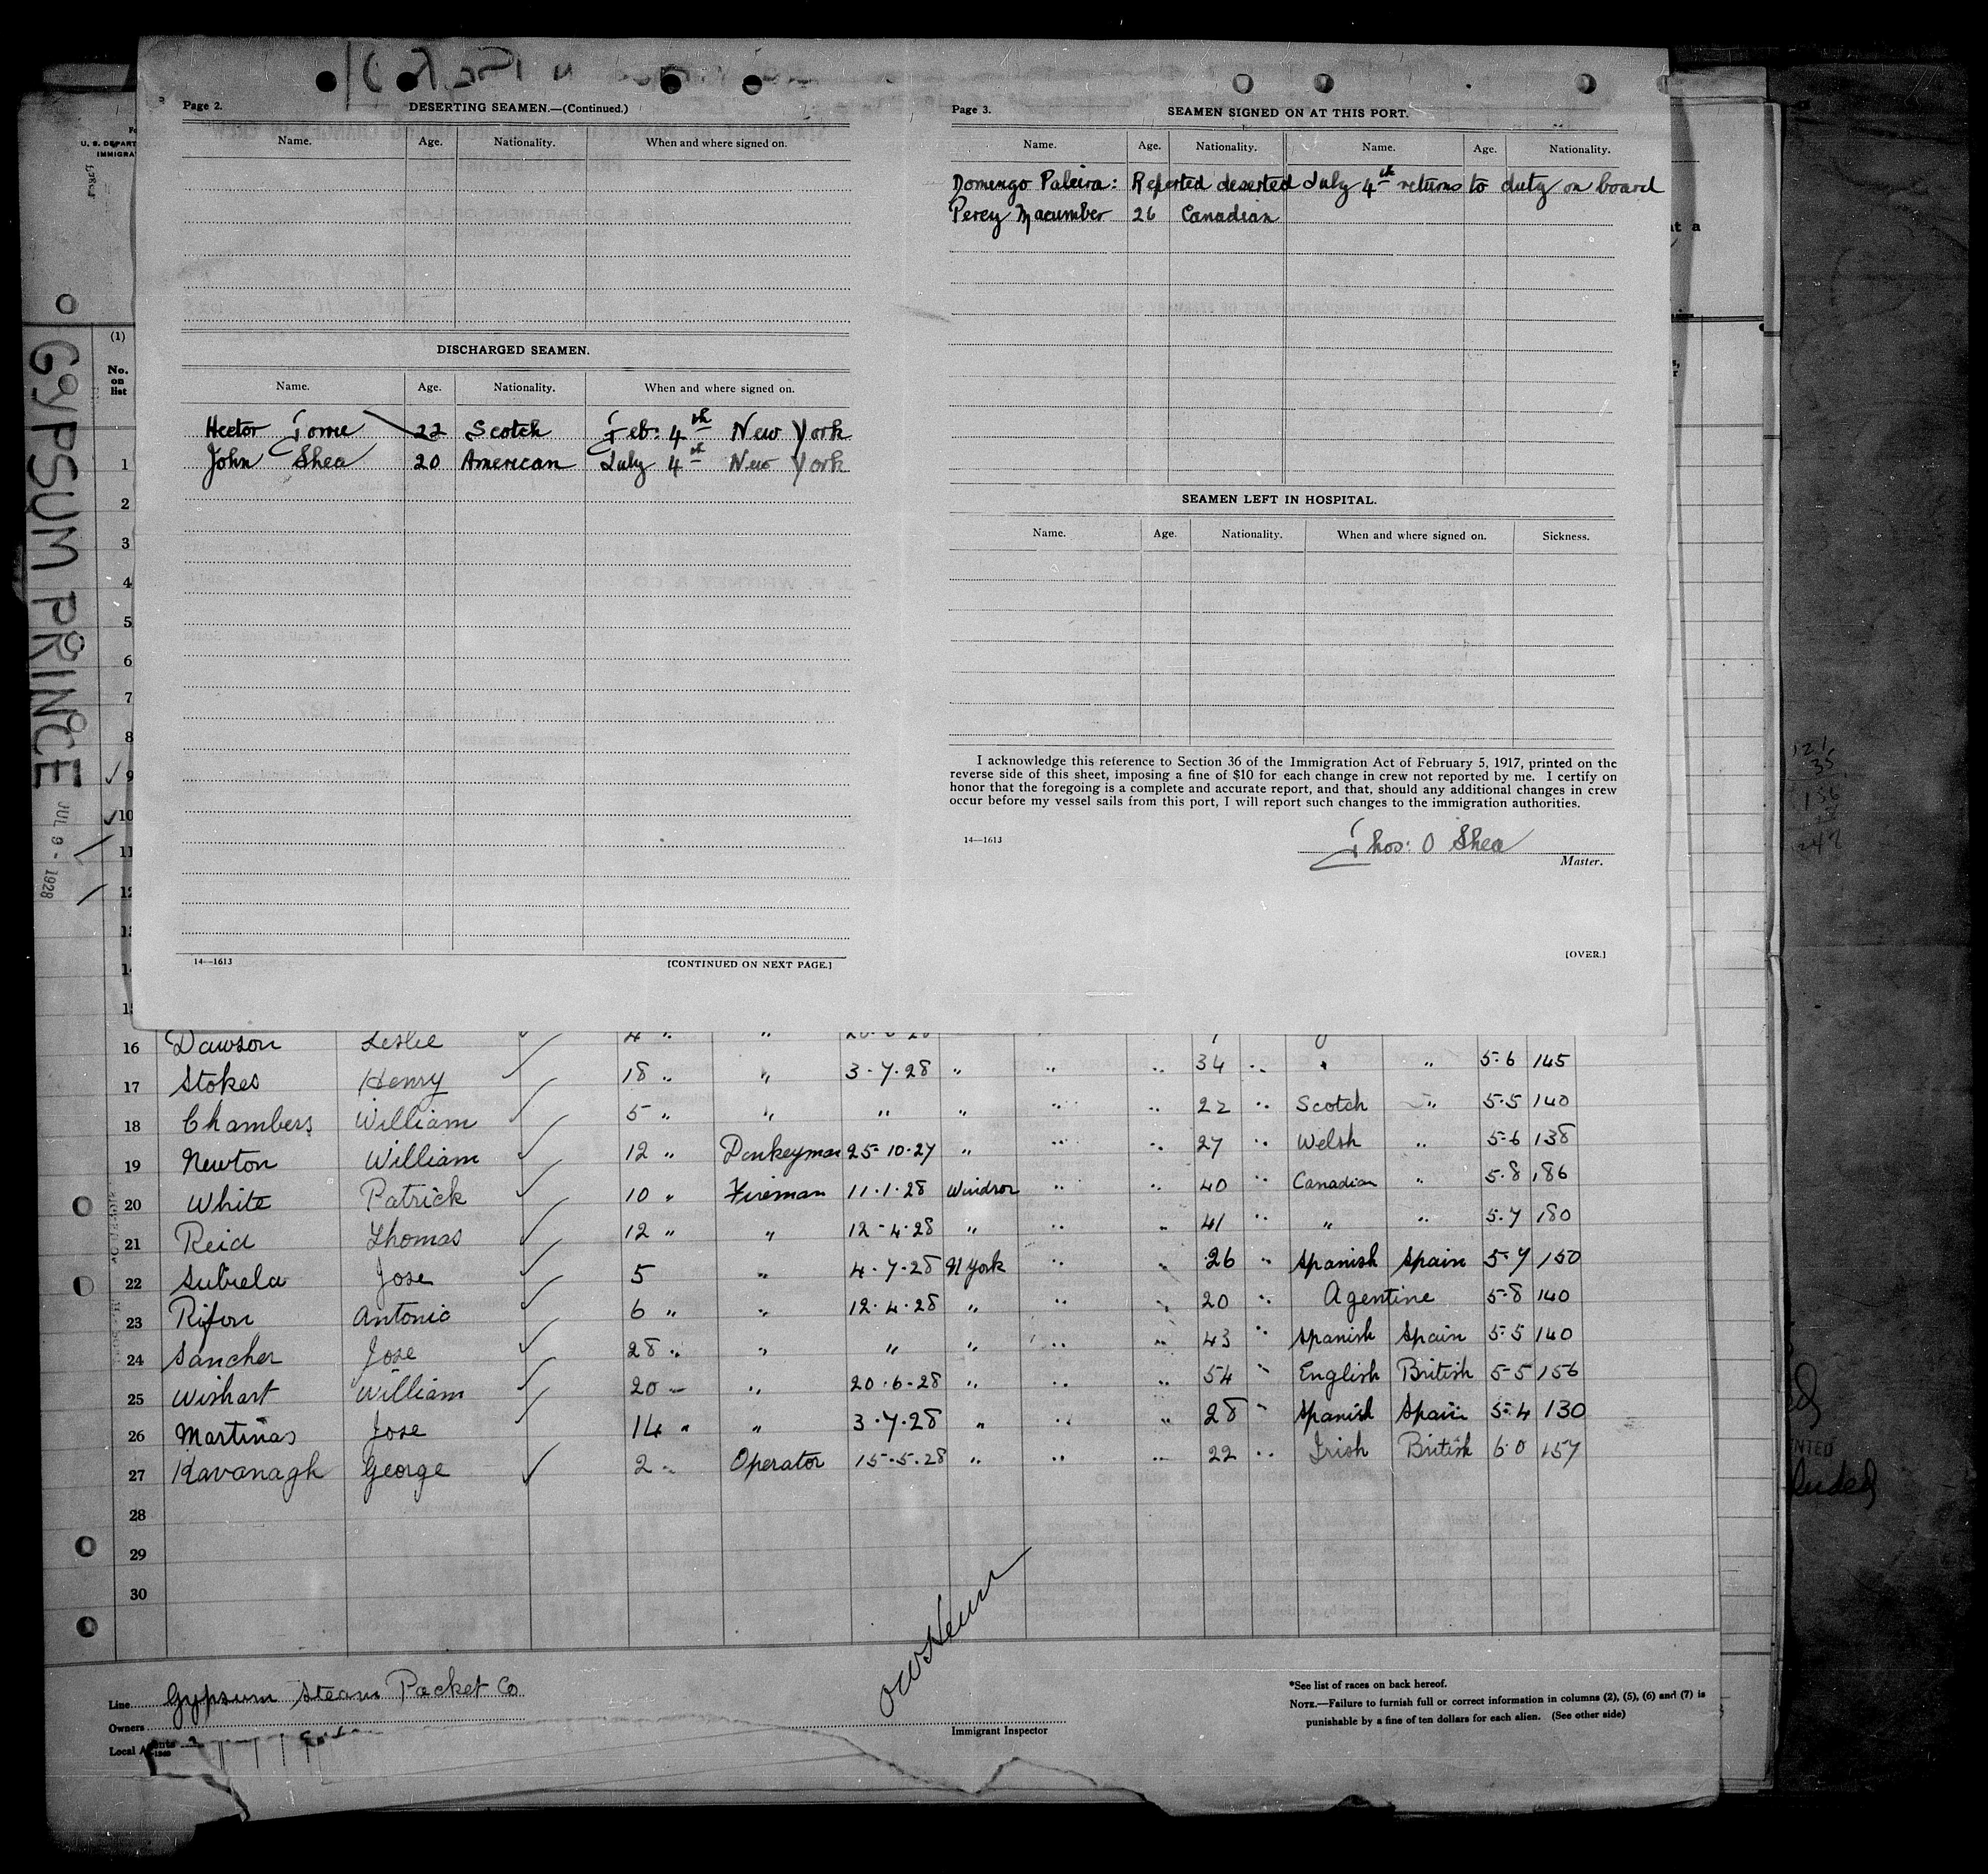 Page 2.
DESERTING SEAMEN.—(Continued.)
Name. Age. Nationality. When and where signed on.
DISCHARGED SEAMEN.
Name. Age. Nationality. When and where signed on.
Hector Torrie 22 Scotch Feb: 4th New York
John Shea 20 American July 4th New York
14—1613 [CONTINUED ON NEXT PAGE.]
Page 3.
SEAMEN SIGNED ON AT THIS PORT.
Name. Age. Nationality. Name. Age. Nationality.
Domengo Paleira: Reported deserted July 4th returns to duty on board
Percy Macumber 26 Canadian
SEAMEN LEFT IN HOSPITAL.
Name. Age. Nationality. When and where signed on. Sickness.
I acknowledge this reference to Section 36 of the Immigration Act of February 5, 1917, printed on the
reverse side of this sheet, imposing a fine of $10 for each change in crew not reported by me. I certify on
honor that the foregoing is a complete and accurate report, and that, should any additional changes in crew
occur before my vessel sails from this port, I will report such changes to the immigration authorities.
14—1613
Thos: O Shea
Master.
[OVER.]
U. S. DEPART
IMMIGRA
(1)
No. on list
GYPSUM PRINCE
JUL 9 - 1928
1
2
3
4
5
6
7
8
9
10
11
12
13
14
15
16 Dawson Leslie 4 "
17 Stokes Henry 18 " " 3-7-28 " " " 34 " " " 5-6 145
18 Chambers William 5 " " " " " " 22 " Scotch " 5-5 140
19 Newton William 12 " Donkeyman 25-10-27 " " " 27 " Welsh " 5-6 138
20 White Patrick 10 " Fireman 11-1-28 Windsor " " 40 " Canadian " 5-8 186
21 Reid Thomas 12 " " 12-4-28 " " " 41 " " " 5-7 180
22 Subiela Jose 5 " 4-7-28 N York " " 26 " Spanish Spain 5-7 150
23 Rifon Antonio 6 " " 12-4-28 " " " 20 " Agentine 5-8 140
24 Sancher Jose 28 " " " " " " 43 " Spanish Spain 5-5 140
25 Wishart William 20 " " 20-6-28 " " " 54 " English British 5-5 156
26 Martinas Jose 14 " " 3-7-28 " " " 28 " Spanish Spain 5-4 130
27 Kavanagh George 2 " Operator 15-5-28 " " " 22 " Irish British 6-0 157
28
29
30
Line Gypsum Steam Packet Co
Owners
Local Agents
Immigrant Inspector
*See list of races on back hereof.
NOTE.—Failure to furnish full or correct information in columns (2), (5), (6) and (7) is
punishable by a fine of ten dollars for each alien. (See other side)